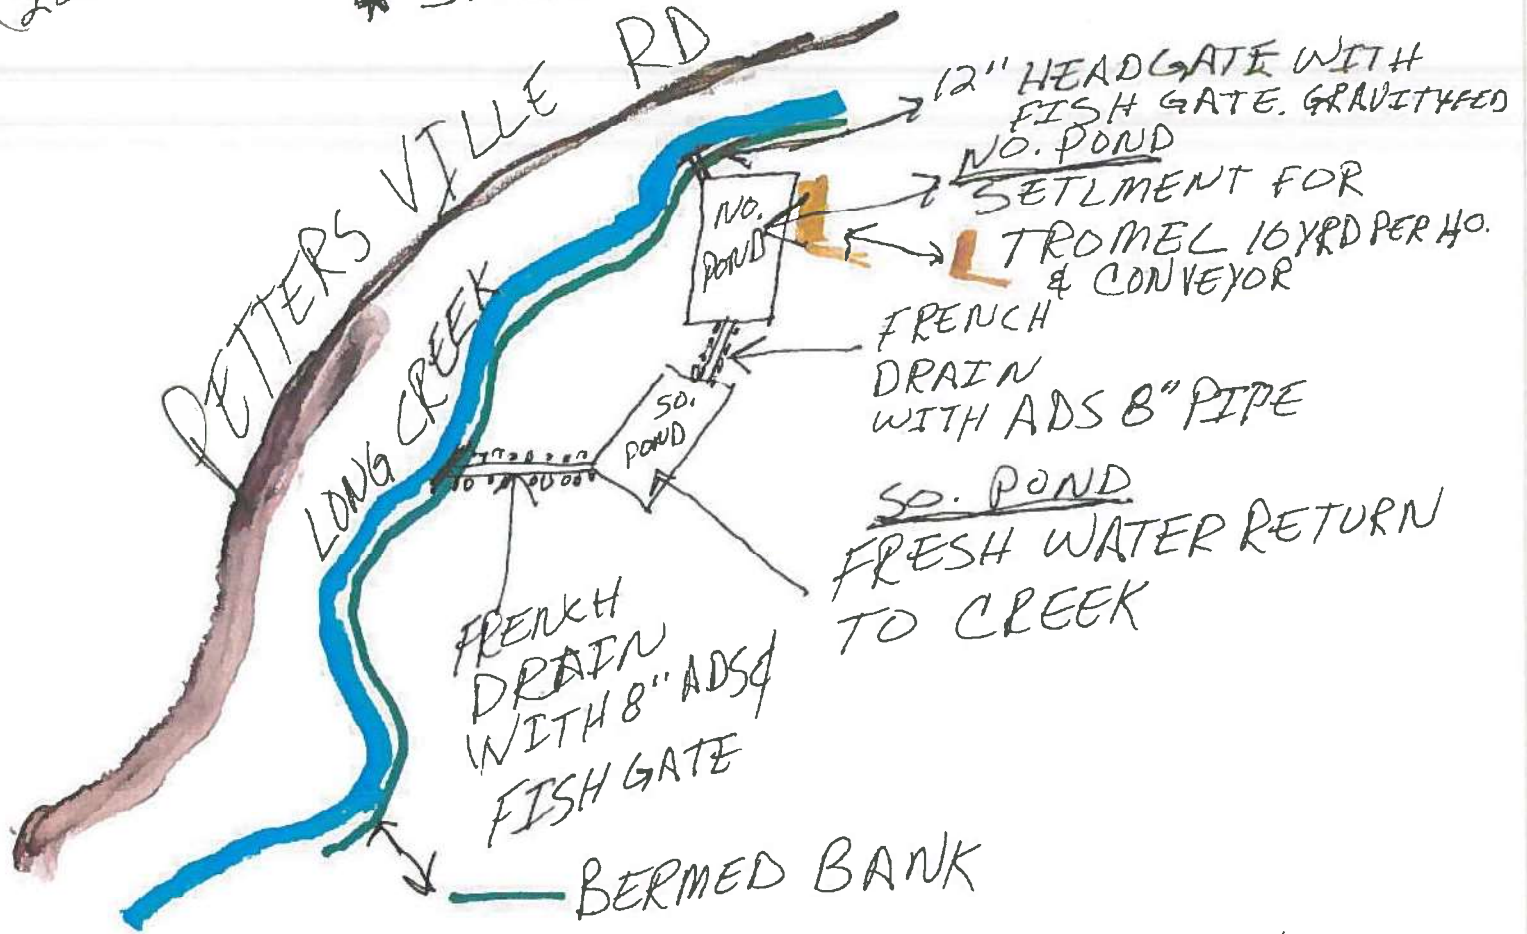 PETTERS VILLE RD
12" HEADGATE WITH
FISH GATE. GRAVITYFED
NO. POND
SETLMENT FOR
TROMEL 10 YRD PER HO.
& CONVEYOR
NO.
POND
LONG CREEK
FRENCH
DRAIN
WITH ADS 8" PIPE
SO.
POND
SO. POND
FRESH WATER RETURN
TO CREEK
FRENCH
DRAIN
WITH 8" ADS &
FISH GATE
BERMED BANK